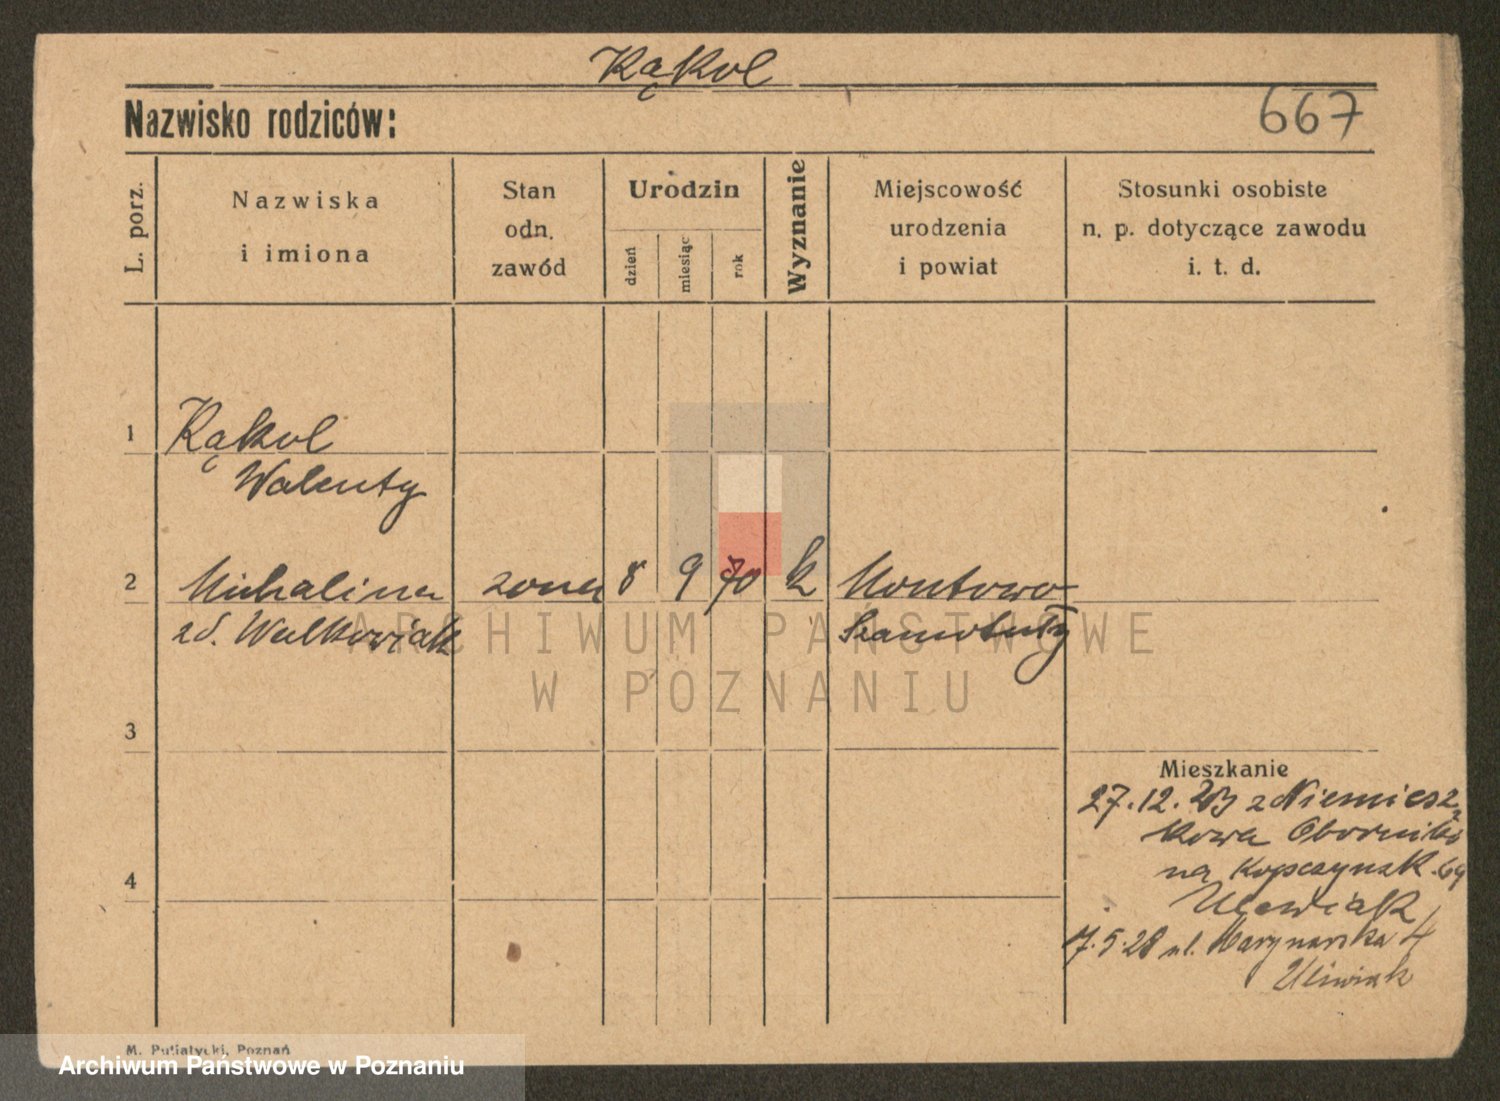 Kąkol
Nazwisko rodziców:
667
L. porz.
Nazwiska
i imiona
Stan
odn.
zawód
Urodzin
dzień
miesiąc
rok
Wyznanie
Miejscowość
urodzenia
i powiat
Stosunki osobiste
n. p. dotyczące zawodu
i. t. d.
1
Kąkol
Walenty
2
Michalina żona 8 9 70 k
zd. Walkowiak Szamotuły
ARCHIWUM PAŃSTWOWE
W POZNANIU
3
Mieszkanie
27.12. z Niemiecz
kowa Oborniki
na Kopczynsk.
4
7.5.28 ul. Marynarska 4
M. Putiatycki, Poznań
Archiwum Państwowe w Poznaniu